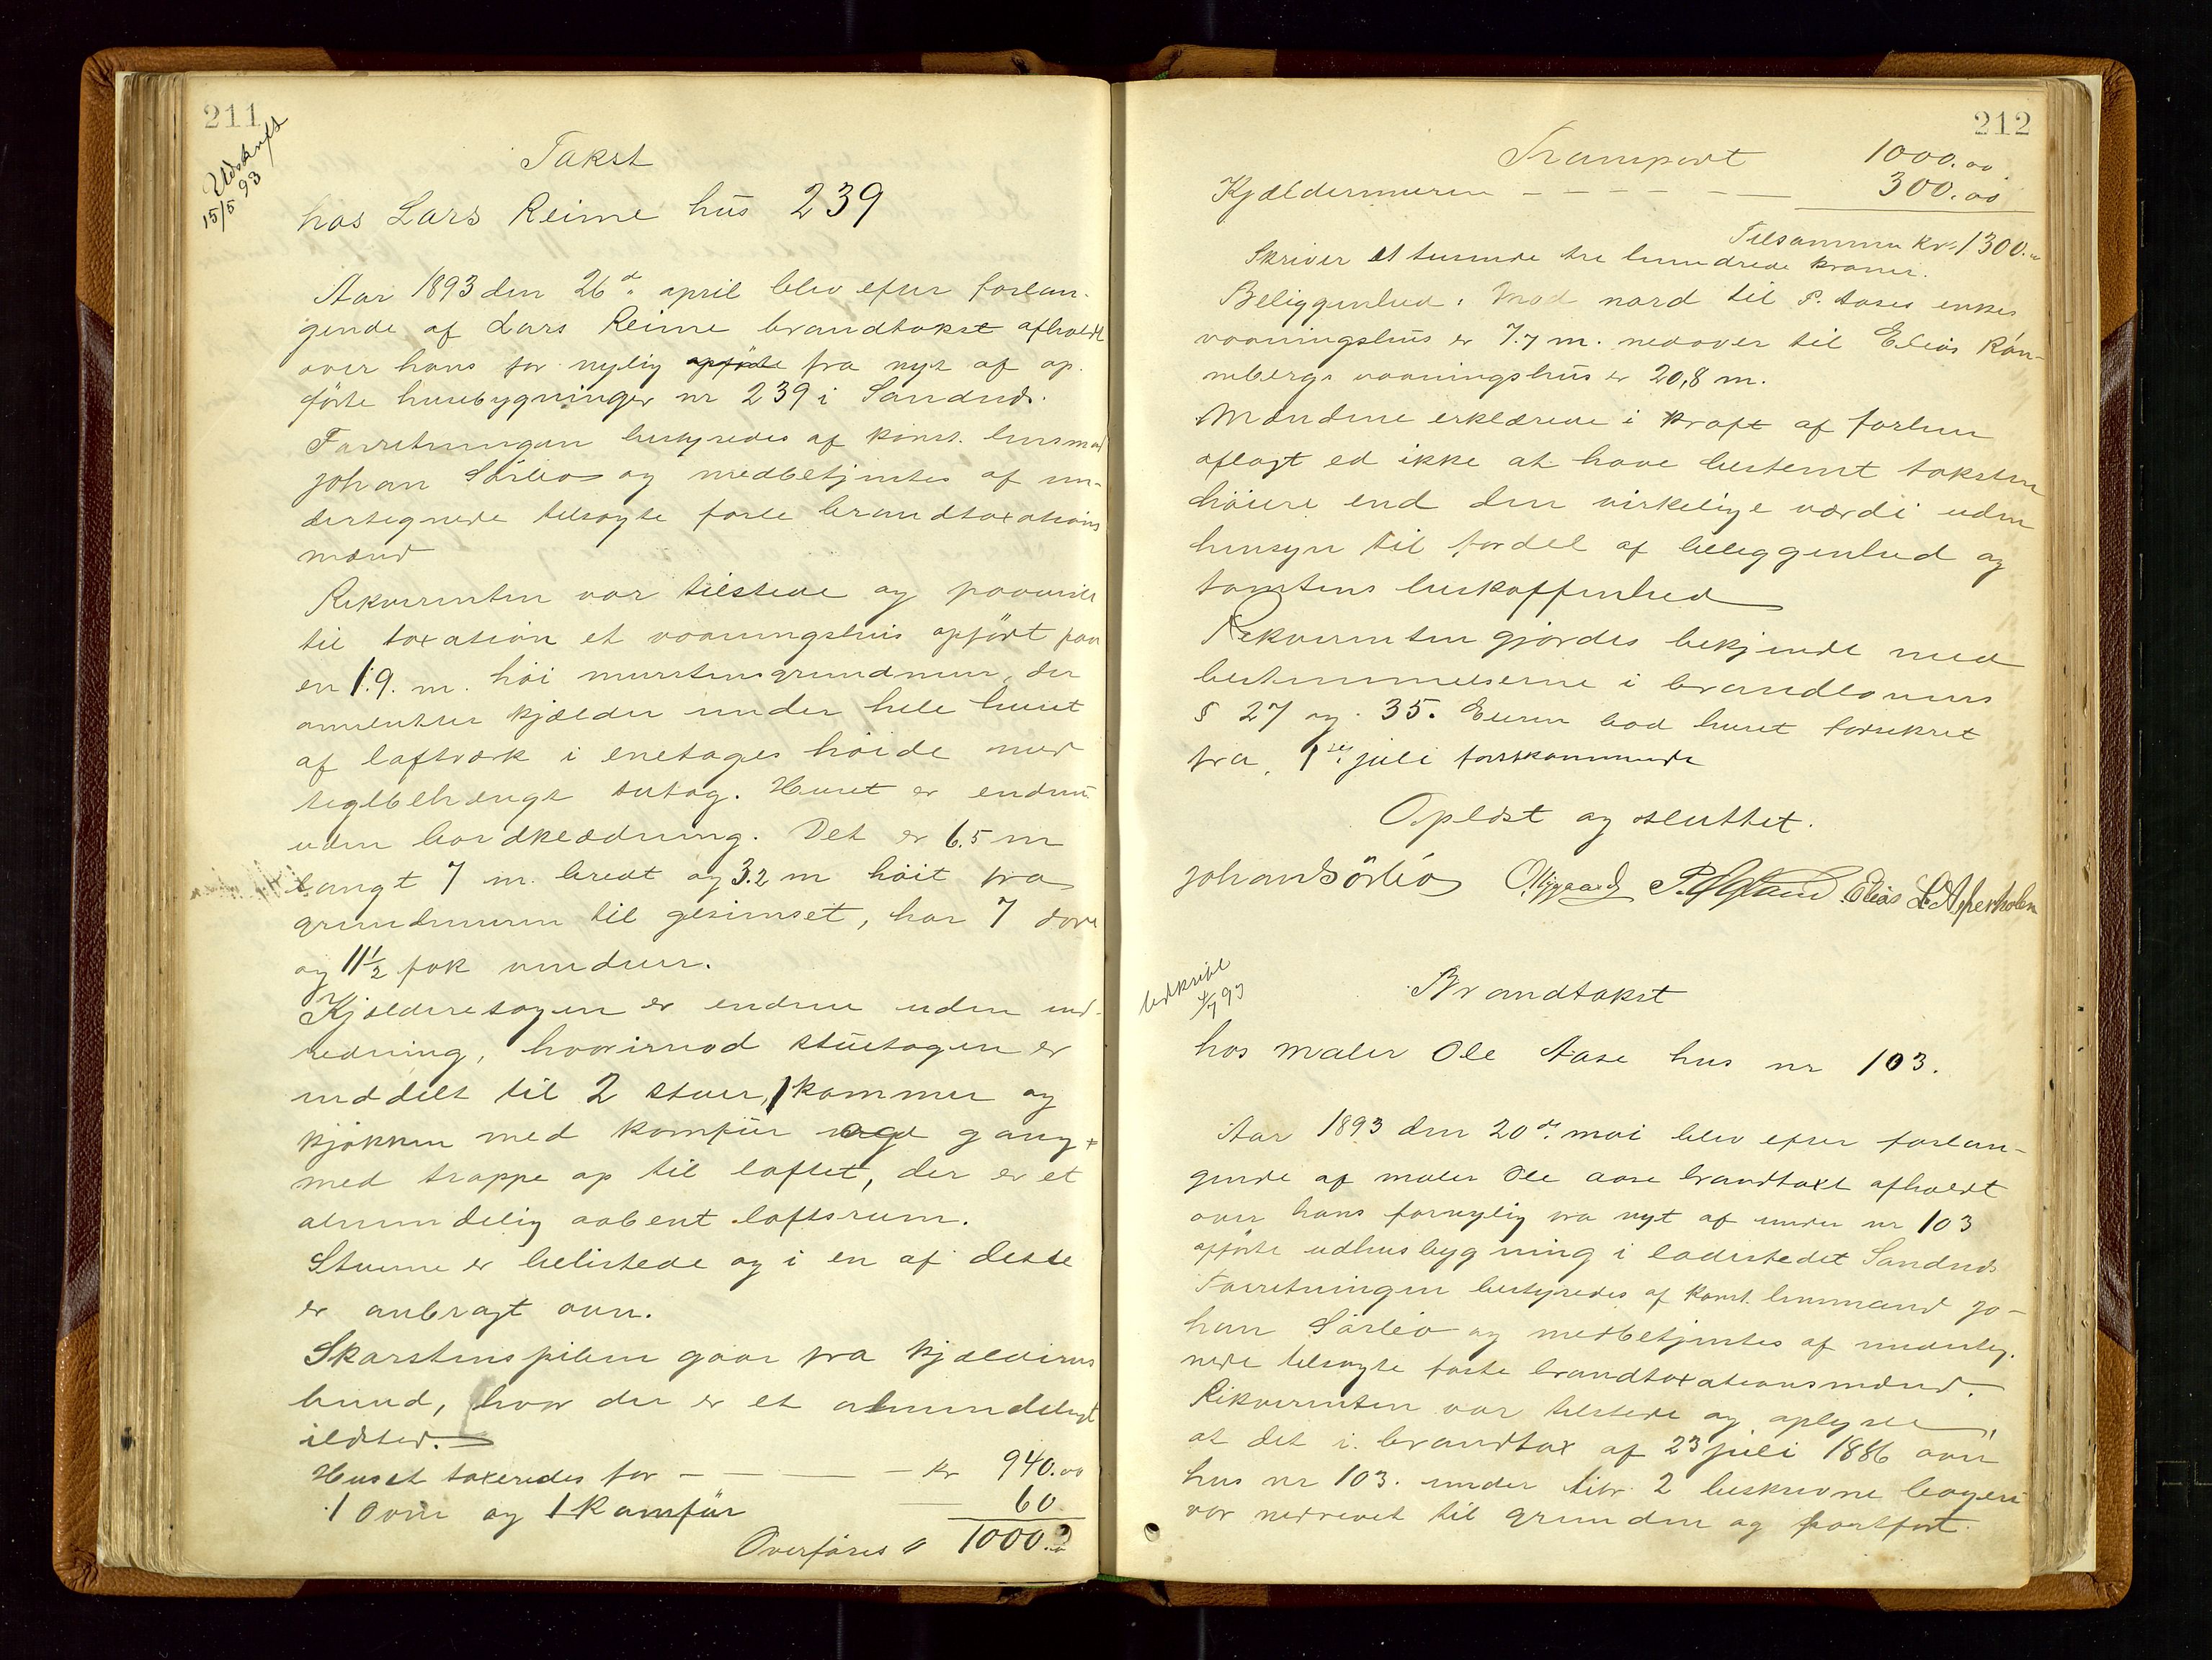 211
Udskrift
15/5 93
Takst
hos Lars Reime hus 239
Aar 1893 den 26de april blev efter forlan-
gende af Lars Reime brandtakst afholdt
over hans for nylig opførte fra nyt af op-
førte husebygninger nr 239 i Sandnes.
Forretningen bestyredes af konst. lensmand
Johan Sörbö og medbetjentes af un-
dertegnede tilsagte faste brandtaxations
mænd
Rekvirenten var tilstede og paaviste
til taxation et vaaningshus opført paa
en 1.9. m. høi murstensgrundmur, der
omslutter kjælder under hele huset
af laftværk i enetages høide med
teglbehængt tutag. Huset er endnu
uden bordklædning. Det er 6.5 m
langt 7 m. bredt og 3.2 m høit fra
grundmuren til gesimset, har 7 døre
og 11½ fok vinduer.
Kjælderetagen er endnu uden ind-
redning, hvorimod stuetagen er
inddelt til 2 stuer, 1 kammer og
kjøkken med komfür gang
med trappe op til loftet, der er et
almindelig aabent loftsrum.
Stuerne er belistede og i en af disse
er anbragt ovn.
Skorstenspiben gaar fra kjælderens
bund, hvor der er et almindeligt
ildsted.
Huset taxeredes for - — — — - kr 940.00
1 ovn og 1 Komfür — 60
Overføres " 1000.00
212
Transport 1000.00
Kjældermuren - - - - - — 300.00
Tilsammen kr. 1300.00
Skriver et tusinde tre hundrede kroner.
Beliggenhed: Mod nord til P. Aases enkes
vaaningshus er 7.7 m. nedover til Elias Røn-
nebergs vaaningshus er 20,8 m.
Mændene erklærede i kraft af forhen
aflagt ed ikke at have bestemt taksten
høiere end den virkelige værdi uden
hensyn til fordel af beliggenhed og
tomtens beskaffenhed
Rekvirenten gjordes bekjendt med
bestemmelserne i brandlovens
§ 27 og 35. Eieren bad huset forsikret
fra 1ste juli førstkommende
Oplæst og sluttet.
Johan Sörbö O. Nygaard P. Opstad Elias L. Asperholm
Udskrift
4/7 93
Brandtakst
hos maler Ole Aase hus nr 103.
Aar 1893 den 20de mai blev efter forlan-
gende af maler Ole Aase brandtaxt afholdt
over hans fornylig fra nyt af under nr 103
opførte udhusbygning i ladestedet Sandnes
Forretningen bestyredes af konst. lensmand Jo-
han Sörbö og medbetjentes af underteg-
nede tilsagte faste brandtaxationsmænd.
Rekvirenten var tilstede og oplyste,
at det i brandtax af 23 juli 1886 over
hus nr 103. under litr. 2 beskrevne bageri
var nedrevet til grunden og bortført.